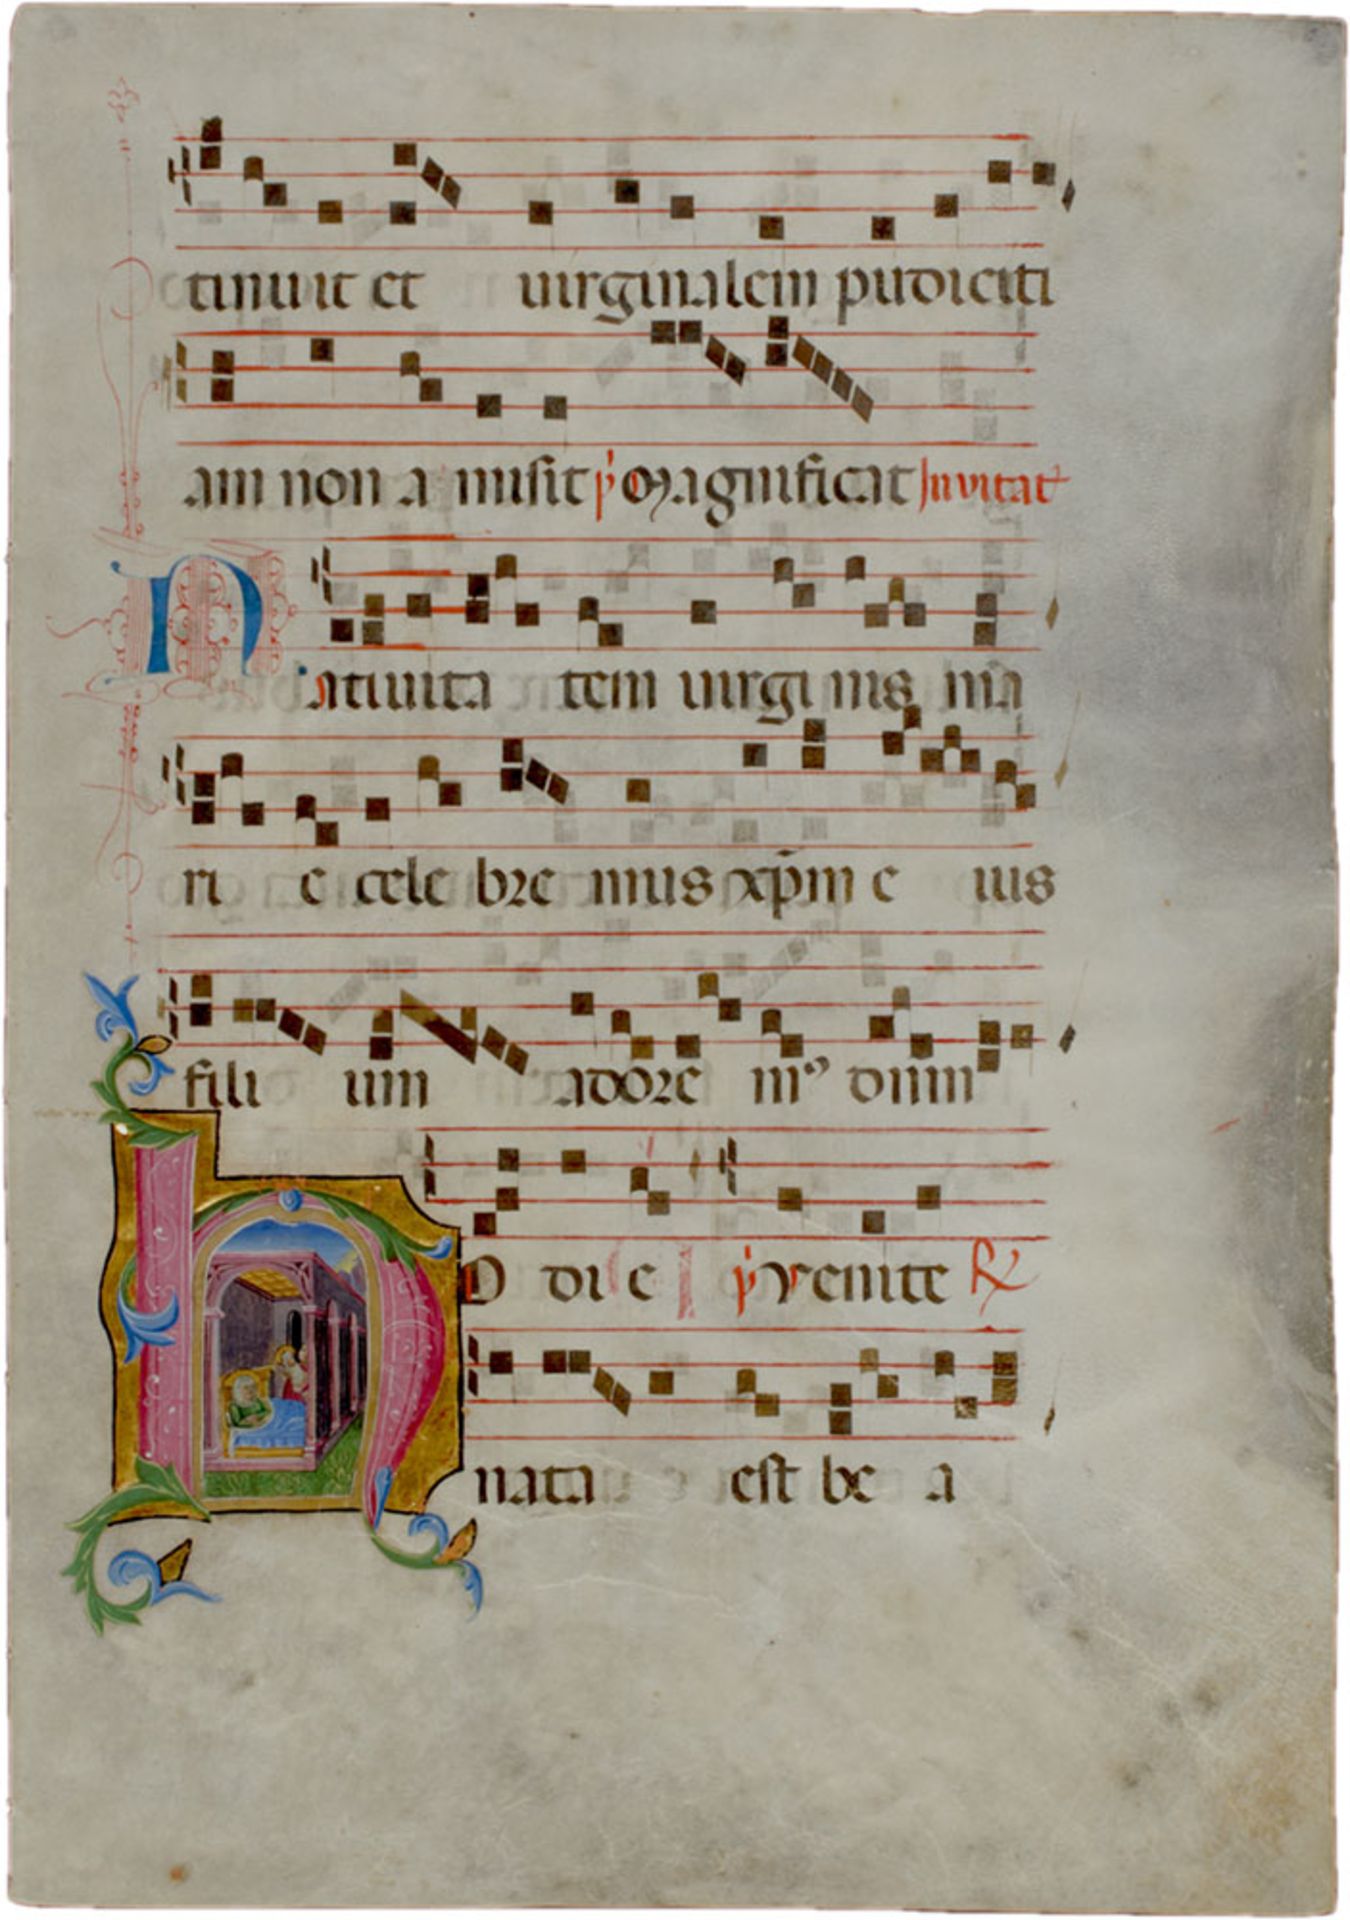 tinuit et uirginalem pudiciti
am non a misit p̄ Magnificat Invitat
Natiuita tem uirgi nis ma
ri e cele bre mus xp̄m e ius
fili um adore mꝰ dnm
HO di e p̄ Venite ℟
nata est be a